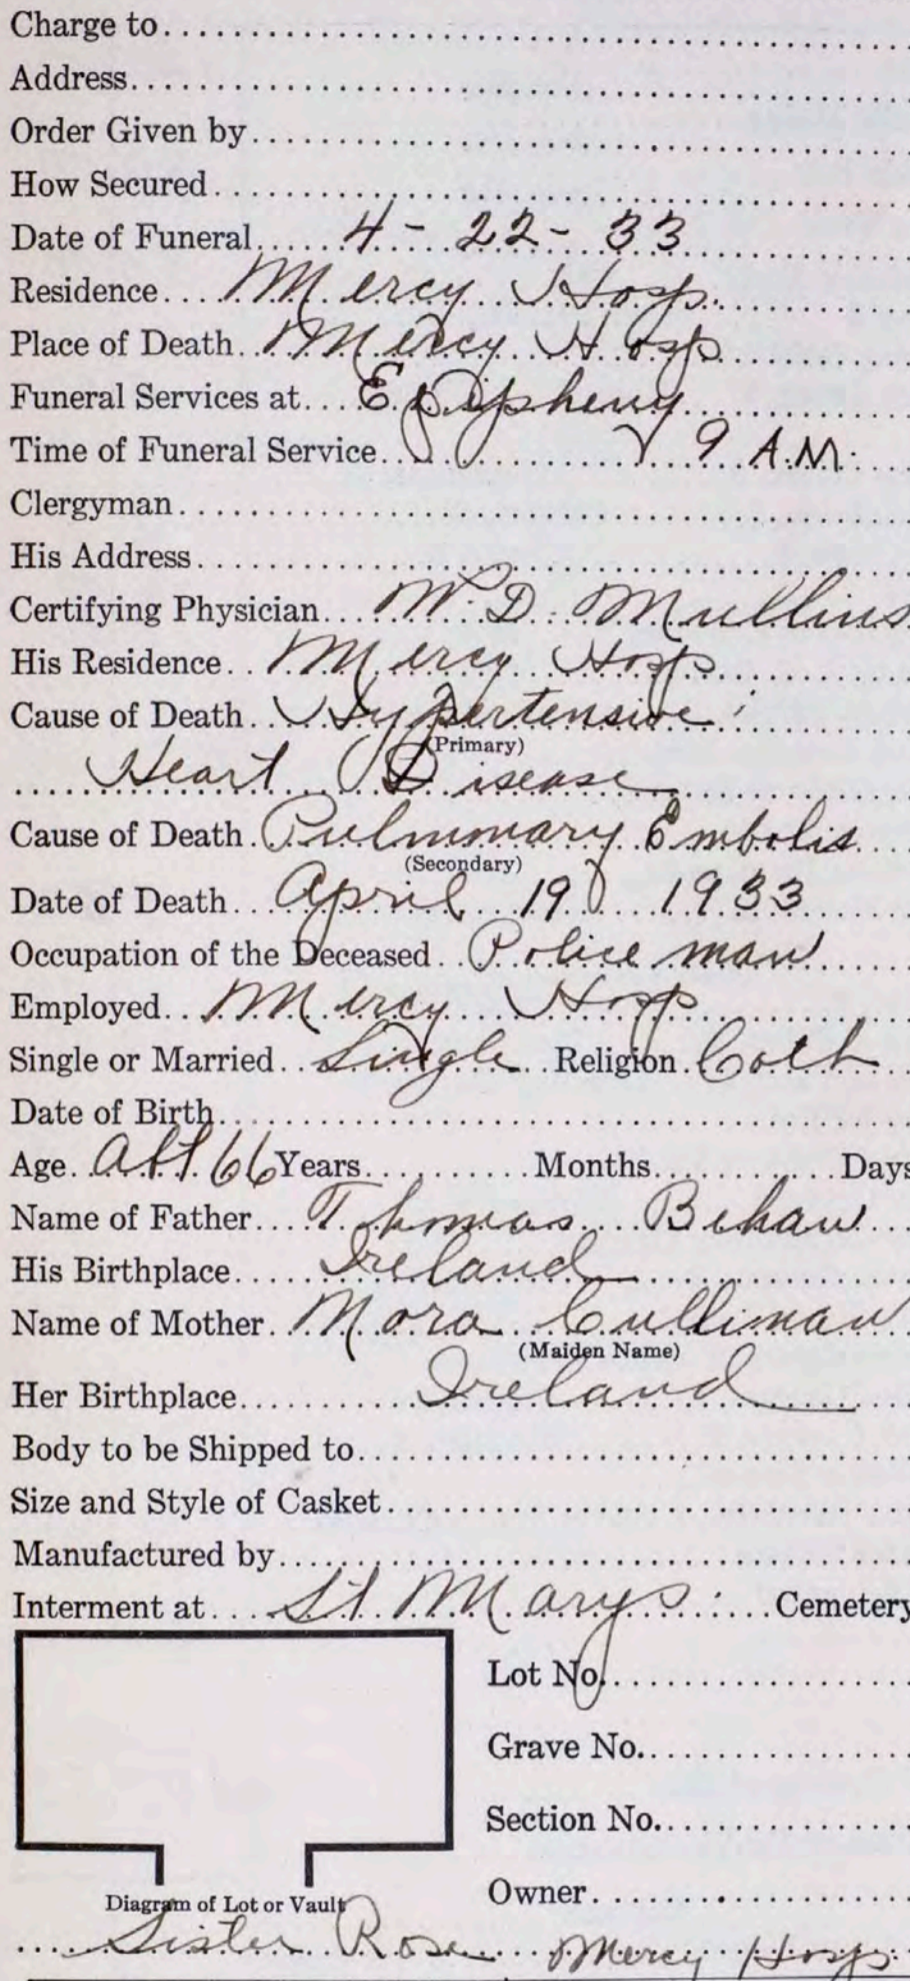 Charge to
Address
Order Given by
How Secured
Date of Funeral 4 - 22 - 33
Residence Mercy Hosp.
Place of Death Mercy Hosp
Funeral Services at Epipheny
Time of Funeral Service 9 A.M.
Clergyman
His Address
Certifying Physician W. D. Mullins
His Residence Mercy Hosp
Cause of Death Hypertensive
(Primary)
Heart Disease
Cause of Death Pulmmary Embolis
(Secondary)
Date of Death April 19 1933
Occupation of the Deceased Police man
Employed Mercy Hosp
Single or Married Single Religion Cath
Date of Birth
Age Abt 66 Years Months Days
Name of Father Thomas Behan
His Birthplace Ireland
Name of Mother Nora Cullinan
(Maiden Name)
Her Birthplace Ireland
Body to be Shipped to
Size and Style of Casket
Manufactured by
Interment at St. Marys Cemetery
Lot No.
Grave No.
Section No.
Owner
Diagram of Lot or Vault
Sister Rose Mercy Hosp.